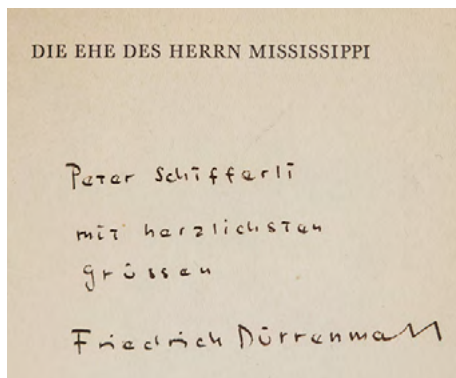 DIE EHE DES HERRN MISSISSIPPI
Peter Schifferli
mit herzlichsten
Grüssen
Friedrich Dürrenmatt